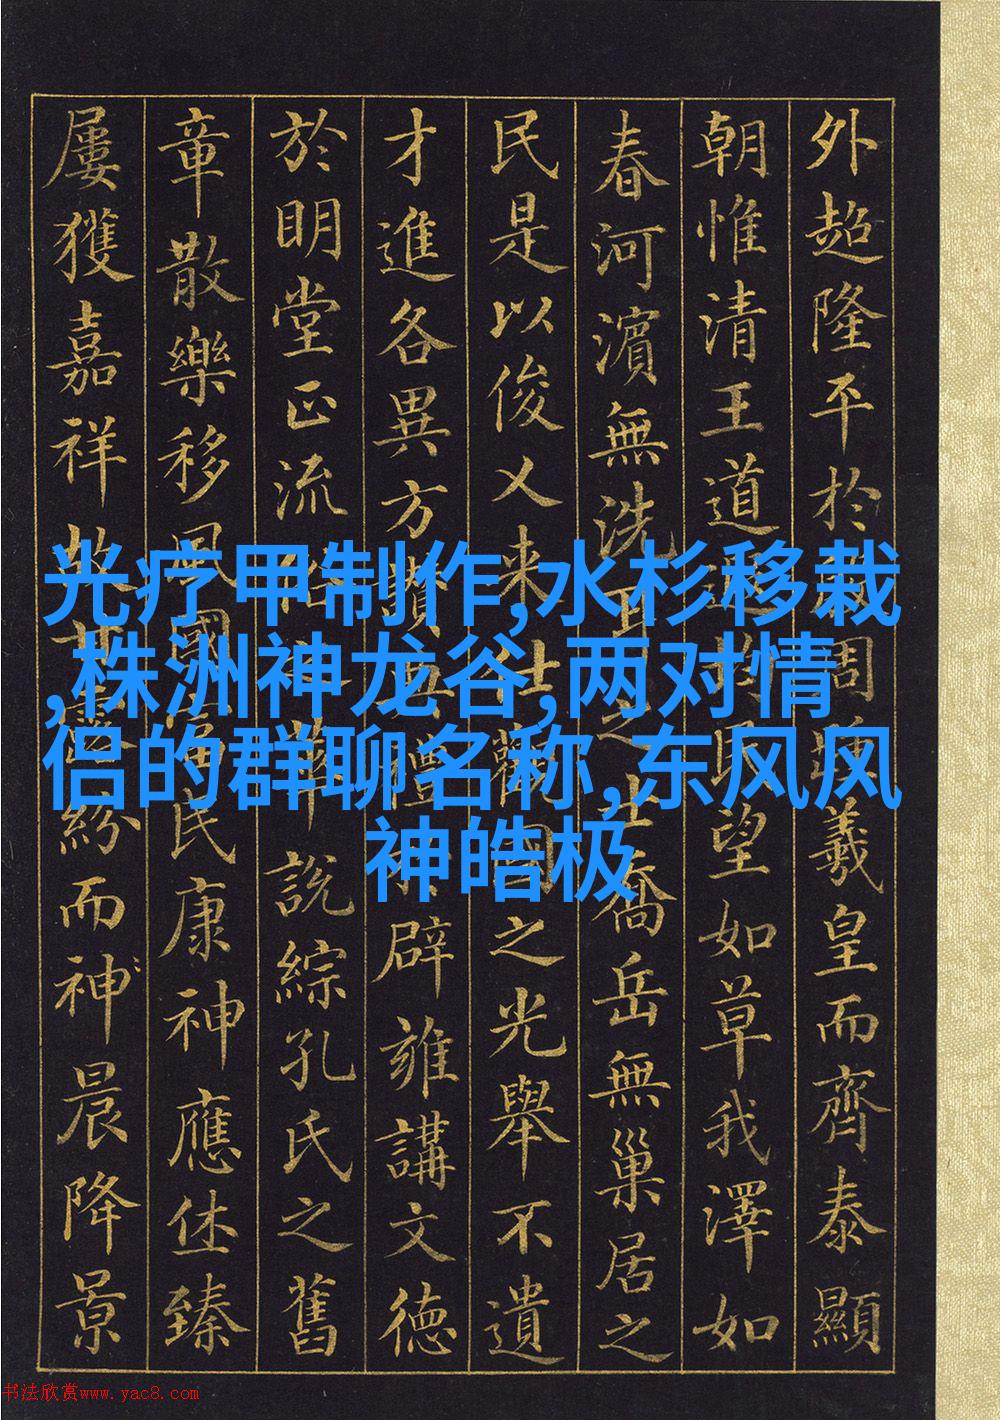 外超隆平於周羲皇而齊泰顯
朝惟清王道均民望如草我澤如
春河濱無洗耳之士喬岳無巢居之
民是以俊乂来仕觀國之光舉不遺
才進各異方讃典禮於辟雍講文德
於明堂正流俗之華說綜孔氏之舊
章散樂移風國富民康神應休臻
屢獲嘉祥故甘紛而神晨降景
光疗甲制作,水杉移栽
,株洲神龙谷,两对情
侣的群聊名称,东风风
神皓极
书法欣赏www.yac8.com